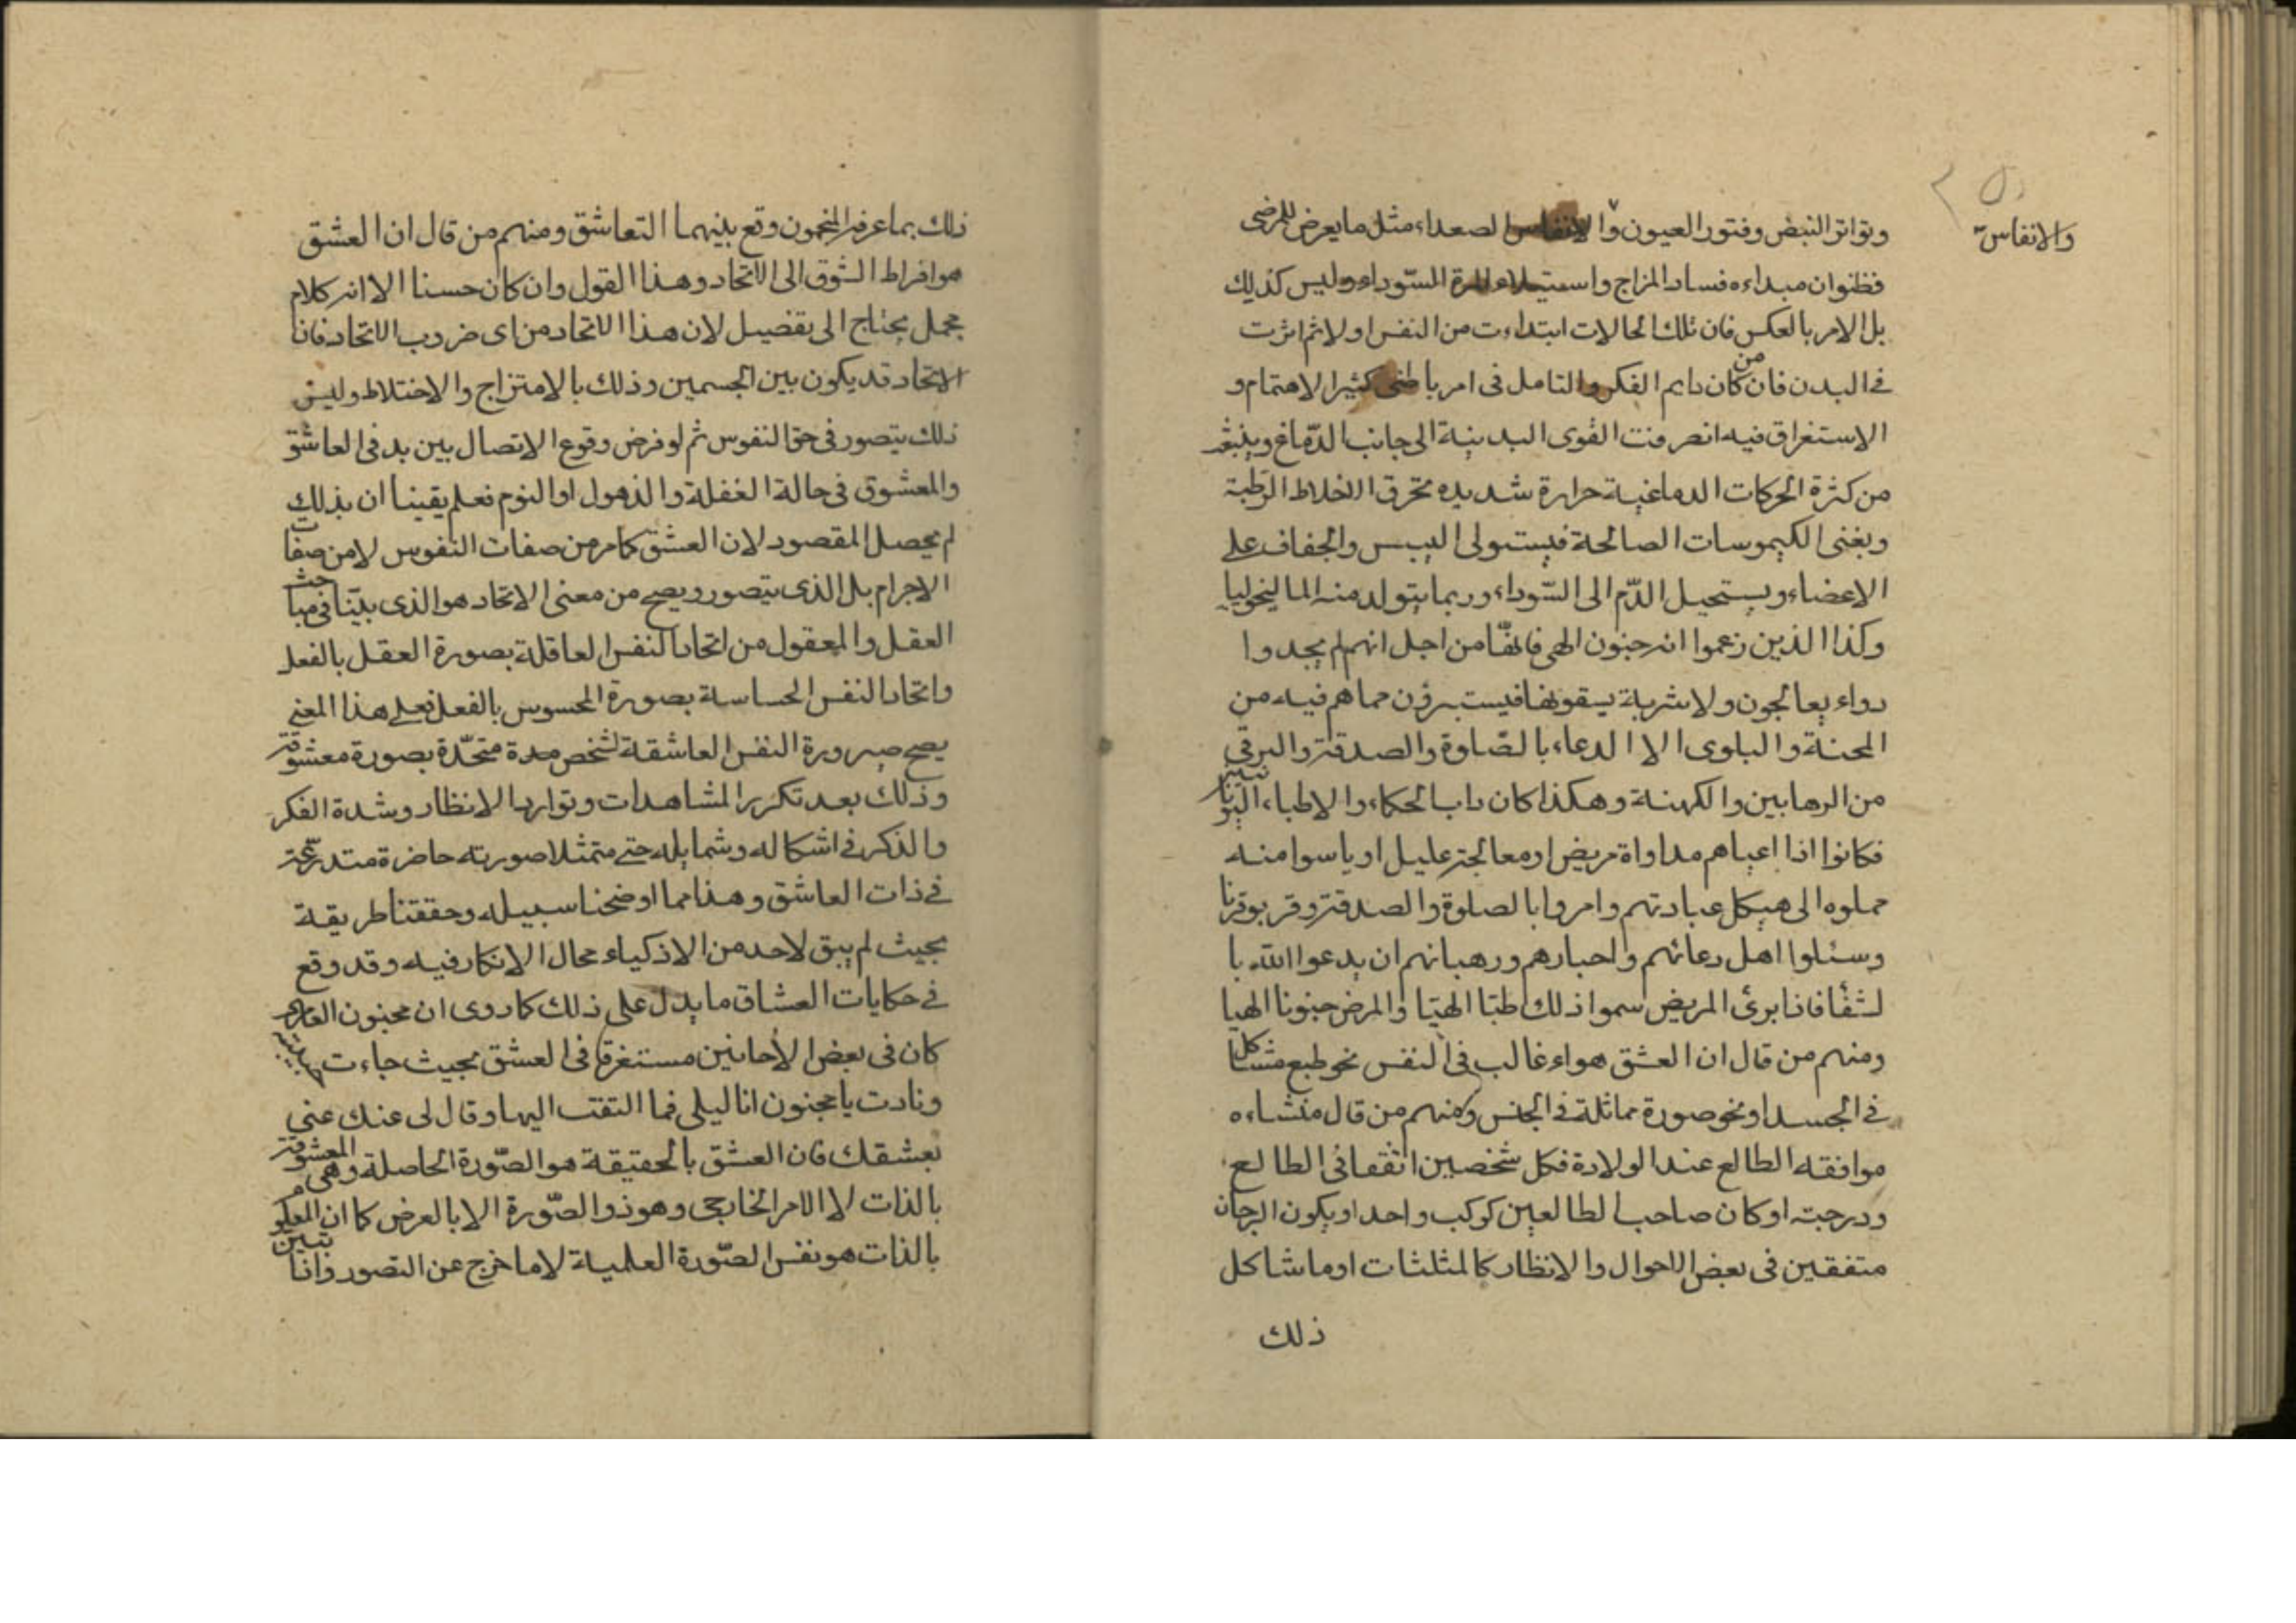 وتواتر النبض وفتور العيون والانفاس الصعداء مثل ما يعرض للمرضى
والانفاس
فظنوا ان مبداءه فساد المزاج واستيلاء المرة السّوداء وليس كذلك
بل الامر بالعكس فان تلك الحالات ابتداءت من النفس اولا ثم اثرت
فى البدن فان من كان دايم الفكر والتامل فى امر باطنى كثير الاهتمام و
الاستغراق فيه انصرفت القوى البدنية الى جانب الدّماغ وينبعث
من كثرة الحركات الدماغية حرارة شديده تحرق الاخلاط الرطبة
ويفنى الكيموسات الصالحة فيستولى اليبس والجفاف على
الاعضاء ويستحيل الدّم الى السّوداء وربما يتولد منه الماليخوليا
وكذا الذين زعموا انه جنون الهى فانمّا من اجل انهم لم يجدوا
دواء يعالجون ولا شربة يسقونها فيستبرؤن مما هم فيه من
المحنة والبلوى الا الدعاء بالصّلوة والصدقة والرقى
من الرهابين والكهنة وهكذا كان داب الحكماء والاطباء اليونانيين
فكانوا اذا اعياهم مداواة مريض او معالجة عليل او ياسوا منه
حملوه الى هيكل عبادتهم وامروا بالصلوة والصدقة وقربوا قربانا
وسئلوا اهل دعائهم واحبارهم ورهبانهم ان يدعوا الله با
لشفاء فاذا برئ المريض سموا ذلك طبّا الهيّا والمرض جنونا الهيا
ومنهم من قال ان العشق هواء غالب فى النفس نحو طبع مشاكل
فى الجسد او نحو صورة مماثلة فى الجنس ومنهم من قال منشاءه
موافقه الطالع عند الولادة فكل شخصين اتفقا فى الطالع
ودرجته او كان صاحب الطالعين كوكب واحد او يكون البرجان
متفقين فى بعض الاحوال والانظار كالمثلثات او ما شاكل
ذلك
ذلك بما عرفه المنجمون وقع بينهما التعاشق ومنهم من قال ان العشق
هو افراط الشوق الى الاتحاد وهذا القول وان كان حسنا الا انه كلام
مجمل يحتاج الى تفضيل لان هذا الاتحاد من اى ضروب الاتحاد فان
الاتحاد قد يكون بين الجسمين وذلك بالامتزاج والاختلاط وليس
ذلك يتصور فى حق النفوس ثم لو فرض وقوع الاتصال بين بدنى العاشق
والمعشوق فى حالة الغفلة والذهول او النوم فعلم يقينا ان بذلك
لم يحصل المقصود لان العشق كما مر من صفات النفوس لا من صفات
الاجرام بل الذى يتصور ويصح من معنى الاتحاد هو الذى بيّنا فى مباحث
العقل والمعقول من اتحاد النفس العاقلة بصورة العقل بالفعل
واتحاد النفس الحساسة بصورة المحسوس بالفعل فعلى هذا المعنى
يصح صيرورة النفس العاشقة لشخص مدة متحدّة بصورة معشوقه
وذلك بعد تكرر المشاهدات وتوارد الانظار وشدة الفكر
والذكر فى اشكاله وشمايله حتى متمثلا صورته حاضرة متدرّعة
فى ذات العاشق وهذا مما اوضحنا سبيله وحققنا طريقة
بحيث لم يبق لاحد من الاذكياء مجال الانكار فيه وقد وقع
فى حكايات العشاق ما يدل على ذلك كما روى ان مجنون العامرى
كان فى بعض الأحانين مستغرقا فى العشق بحيث جاءت حبيبته
ونادت يا مجنون انا ليلى فما التفت اليها وقال لى عنك غنى
بعشقك فان العشق بالحقيقة هو الصّورة الحاصلة وهى المعشوقة
بالذات لا الامر الخارجى وهو ذو الصّورة الا بالعرض كما ان المعلوم
بالذات هو نفس الصّورة العلمية لا ما خرج عن التصور واذا تبين